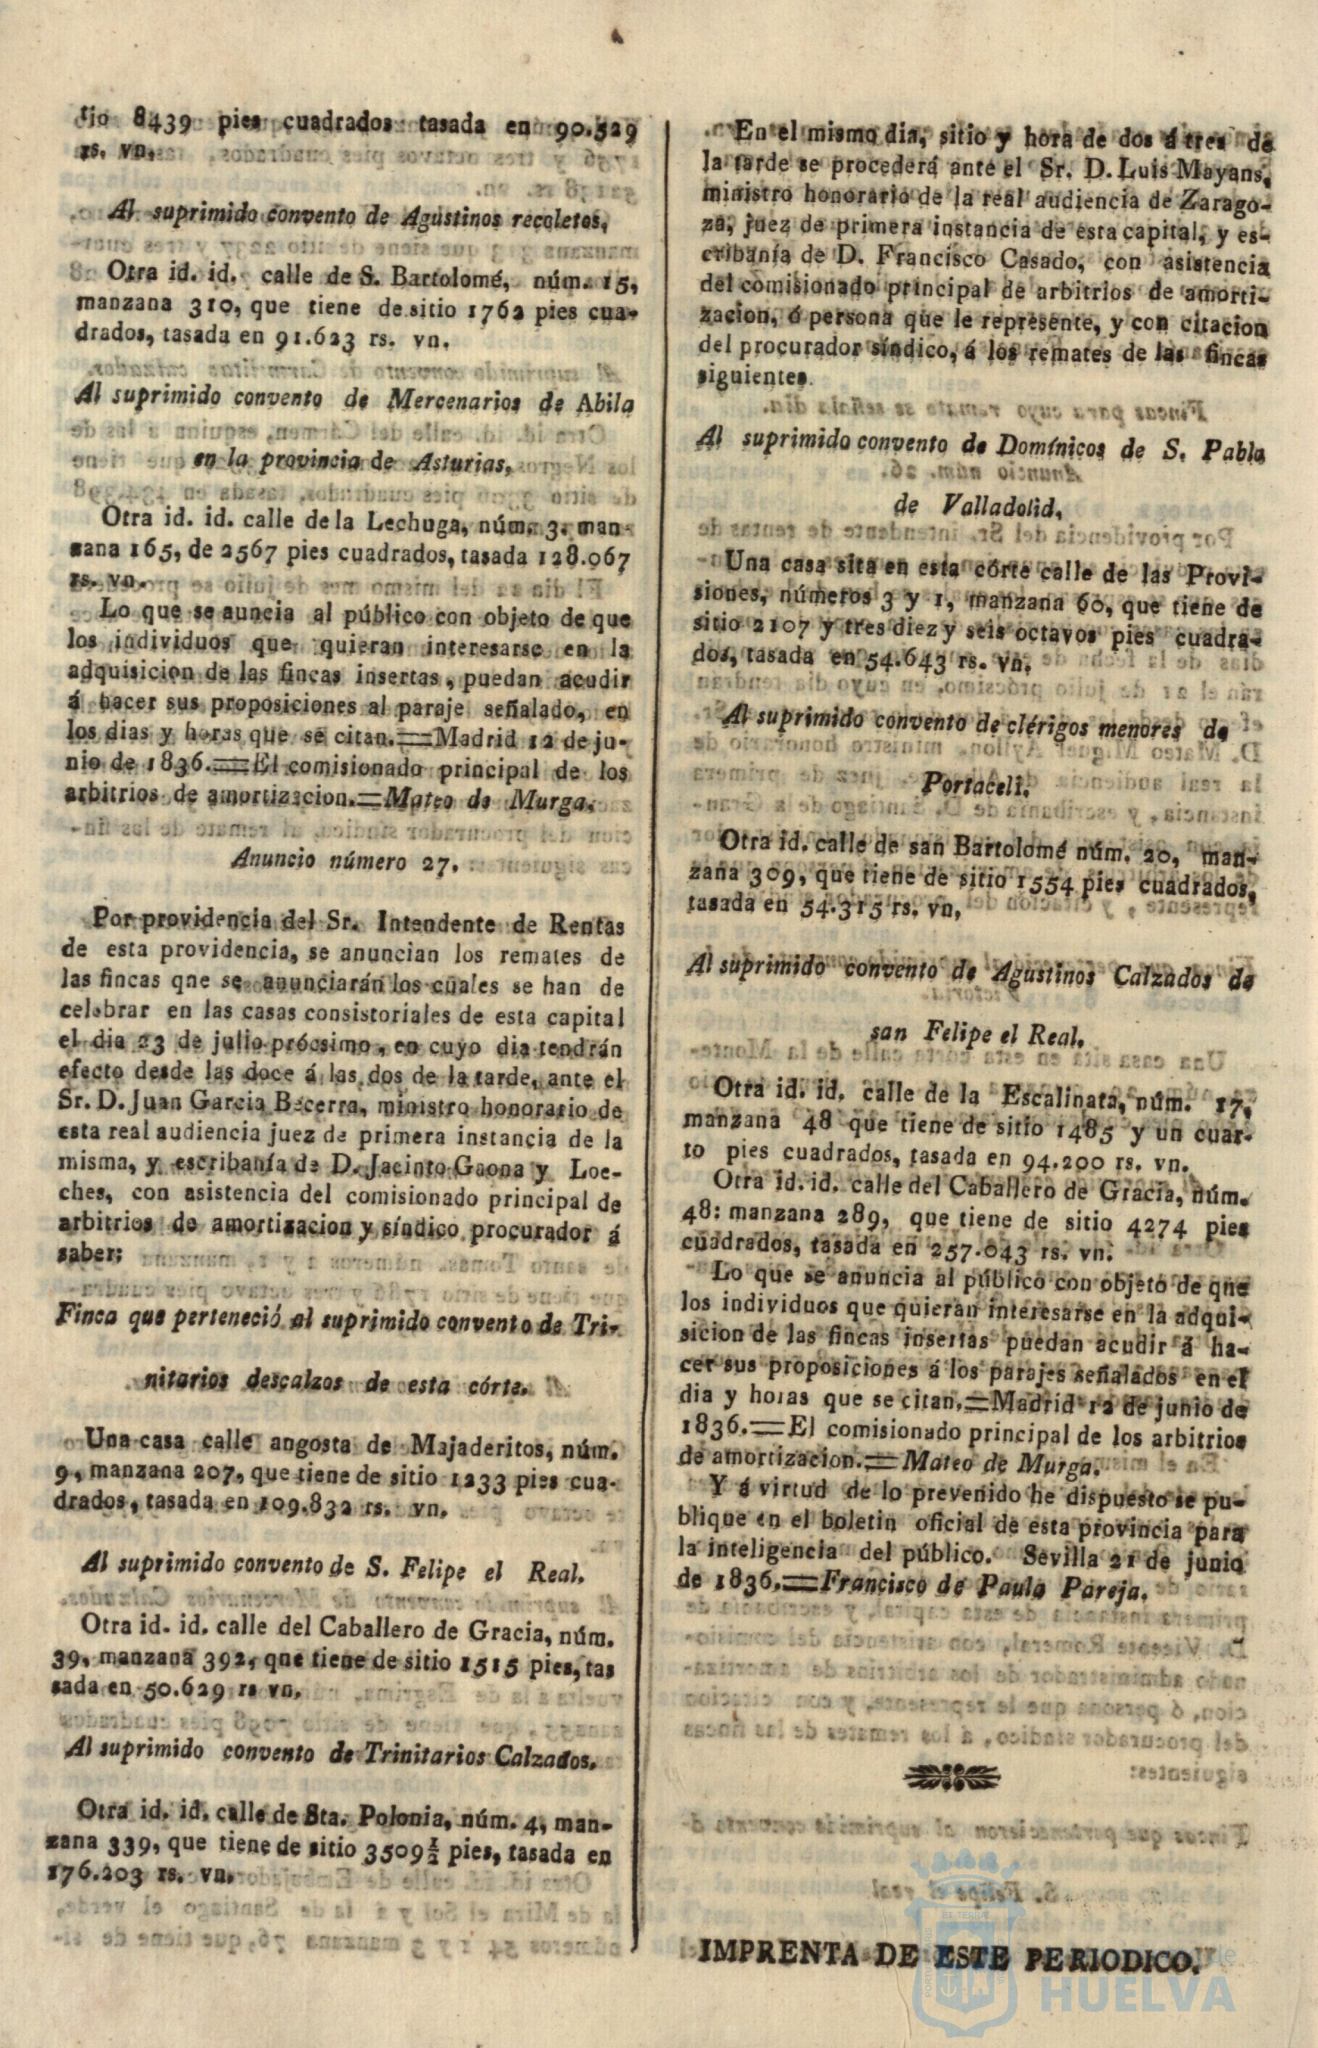 tio 8439 pies cuadrados tasada en 90.529
rs. vn.
Al suprimido convento de Agustinos recoletos,
Otra id. id. calle de S. Bartolomé, núm. 15,
manzana 310, que tiene de sitio 1762 pies cua-
drados, tasada en 91.623 rs. vn.
Al suprimido convento de Mercenarios de Abila
en la provincia de Asturias,
Otra id. id. calle de la Lechuga, núm. 3. man-
zana 165, de 2567 pies cuadrados, tasada 128.067
rs. vn.
Lo que se auncia al público con objeto de que
los individuos que quieran interesarse en la
adquisicion de las fincas insertas, puedan acudir
á hacer sus proposiciones al paraje señalado, en
los dias y horas que se citan.=Madrid 12 de ju-
nio de 1836.=El comisionado principal de los
arbitrios de amortizacion.=Mateo de Murga.
Anuncio número 27.
Por providencia del Sr. Intendente de Rentas
de esta providencia, se anuncian los remates de
las fincas qne se anunciarán los cuales se han de
celebrar en las casas consistoriales de esta capital
el dia 23 de julio prócsimo, en cuyo dia tendrán
efecto desde las doce á las dos de la tarde, ante el
Sr. D. Juan Garcia Becerra, ministro honorario de
esta real audiencia juez de primera instancia de la
misma, y escribanía de D. Jacinto Gaona y Loe-
ches, con asistencia del comisionado principal de
arbitrios de amortizacion y síndico procurador á
saber:
Finca que perteneció al suprimido convento de Tri-
nitarios descalzos de esta córte.
Una casa calle angosta de Majaderitos, núm.
9, manzana 207, que tiene de sitio 1233 pies cua-
drados, tasada en 109.832 rs. vn.
Al suprimido convento de S. Felipe el Real.
Otra id. id. calle del Caballero de Gracia, núm.
39, manzana 392, que tiene de sitio 1515 pies, tas
sada en 50.629 rs vn.
Al suprimido convento de Trinitarios Calzados.
Otra id. id. calle de Sta. Polonia, núm. 4, man-
zana 339, que tiene de sitio 3509½ pies, tasada en
176.203 rs. vn.
En el mismo dia, sitio y hora de dos á tres de
la tarde se procederá ante el Sr. D. Luis Mayans,
ministro honorario de la real audiencia de Zarago-
za, juez de primera instancia de esta capital, y es-
cribanía de D. Francisco Casado, con asistencia
del comisionado principal de arbitrios de amorti-
zacion, ó persona que le represente, y con citacion
del procurador síndico, á los remates de las fincas
siguientes.
Al suprimido convento de Domínicos de S. Pablo
de Valladolid,
Una casa sita en esta córte calle de las Provi-
siones, números 3 y 1, manzana 60, que tiene de
sitio 2107 y tres diez y seis octavos pies cuadra-
dos, tasada en 54.643 rs. vn.
Al suprimido convento de clérigos menores de
Portaceli.
Otra id. calle de san Bartolomé núm. 20, man-
zana 309, que tiene de sitio 1554 pies cuadrados,
tasada en 54.315 rs. vn,
Al suprimido convento de Agustinos Calzados de
san Felipe el Real.
Otra id. id. calle de la Escalinata, núm. 17,
manzana 48 que tiene de sitio 1485 y un cuar-
to pies cuadrados, tasada en 94.200 rs. vn.
Otra id. id. calle del Caballero de Gracia, núm.
48: manzana 289, que tiene de sitio 4274 pies
cuadrados, tasada en 257.043 rs. vn.
Lo que se anuncia al público con objeto de qne
los individuos que quieran interesarse en la adqui-
sicion de las fincas insertas puedan acudir á ha-
cer sus proposiciones á los parajes señalados en el
dia y horas que se citan.=Madrid 12 de junio de
1836.=El comisionado principal de los arbitrios
de amortizacion.=Mateo de Murga.
Y á virtud de lo prevenido he dispuesto se pu-
blique en el boletin oficial de esta provincia para
la inteligencia del público. Sevilla 21 de junio
de 1836.=Francisco de Paula Pareja.
IMPRENTA DE ESTE PERIODICO.
HUELVA